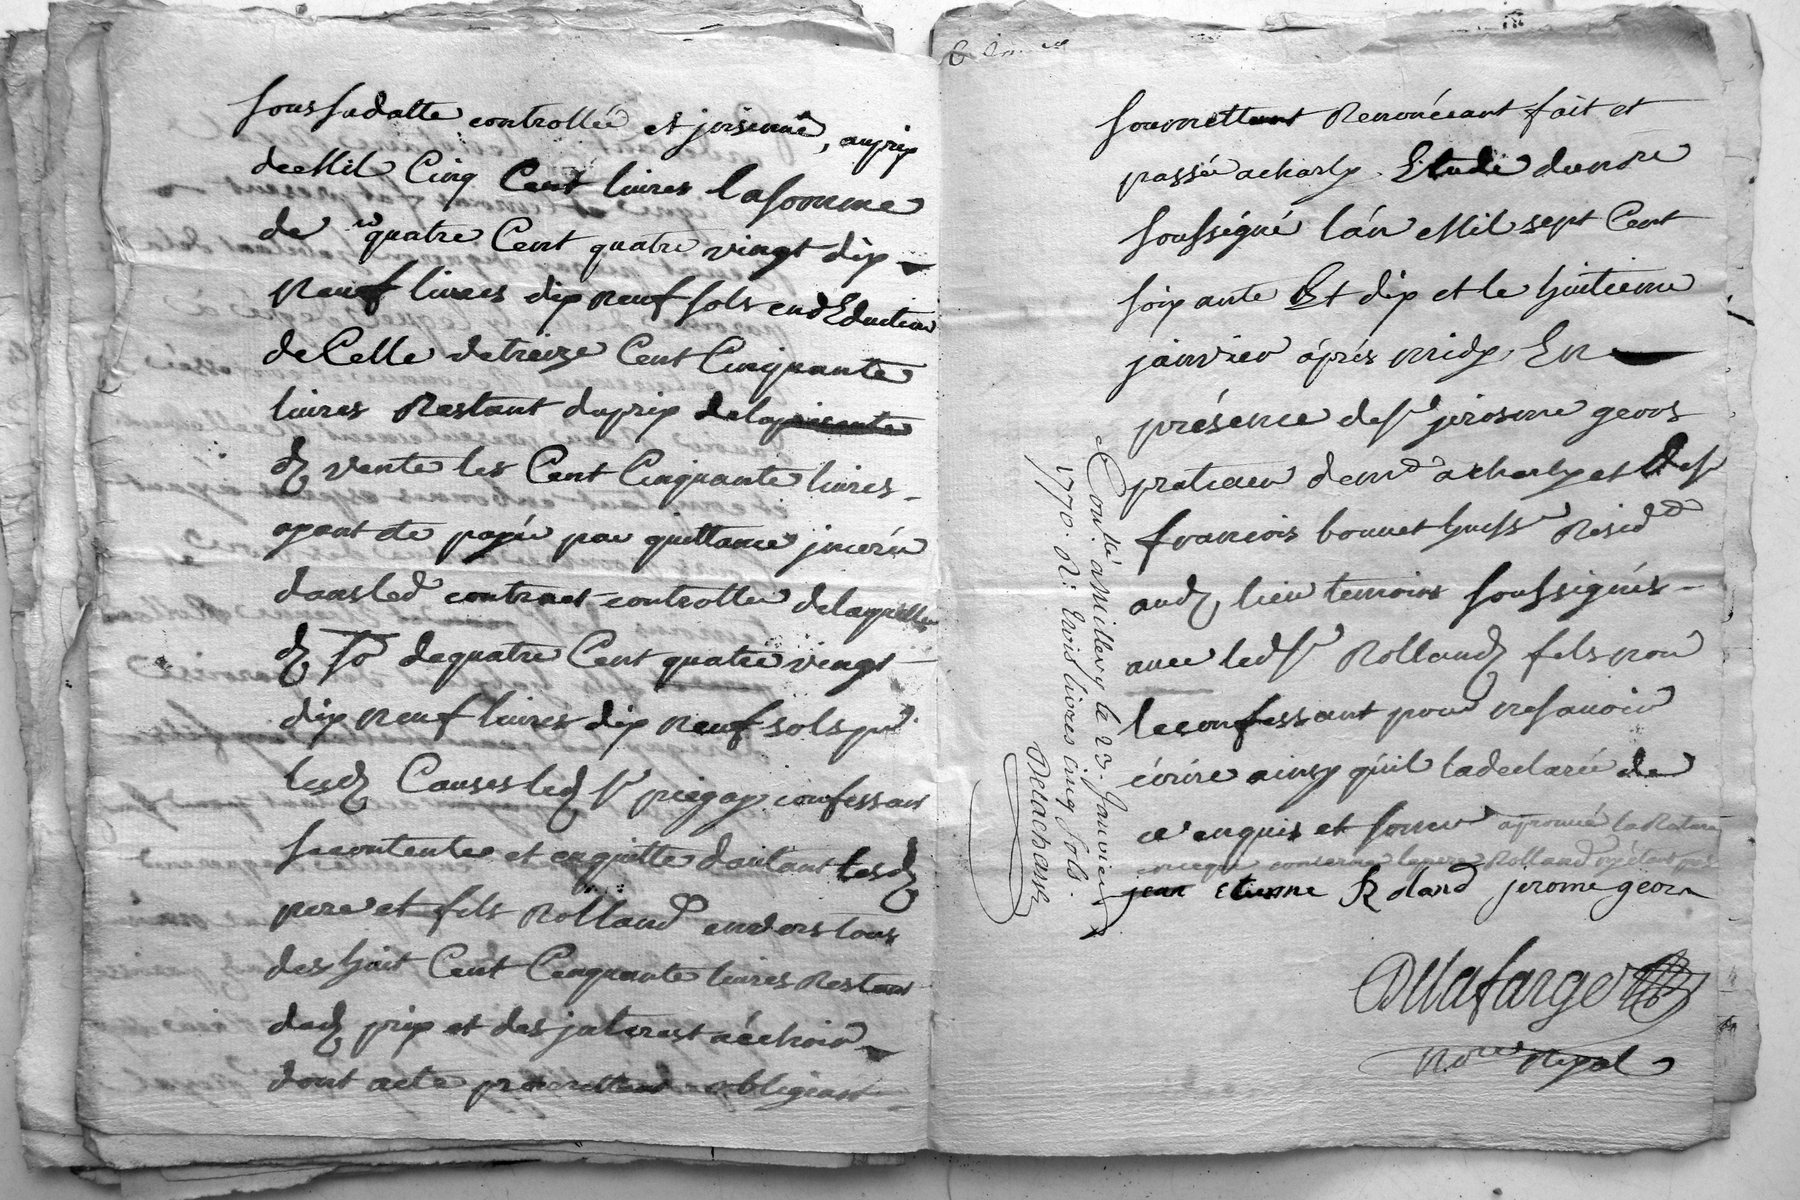 sous sadatte controllée et jnsinué, auprix
de Mil Cinq Cent livres la somme
de quatre Cent quatre vingt dix
neuf livres dix neuf sols end Eduction
de Celle de treize Cent Cinquante
livres Restant duprix
dz vente les Cent Cinquante livres
ayant ete payée par quittance jnserée
dansled contract controllé delaquelle
dz So de quatre Cent quatre vingt
dix neuf livres dix neuf sols pr
lesdz Causes ledz Sr piegay confessant
se contenter et enquitte dautant lesdz
pere et fils Rolland envers tous
des huit Cent Cinquante livres Restant
dudz prix et des jnterest aéchoir
dont acte promettant obligeant
soumettant Renonceant fait et
passé acharly Etude dunore
soussigné lán Mil sept Cent
soixante Et dix et le huitieme
janvier áprés midy En
présence de Sr jerosme geors
praticien demt acharly et de Sr
francois bonnet huissr Residt
audz lieu temoins soussignés
avec led Sr Rollandz fils non
le confessant pour ne savoir
écrire ainsy quil la declaré de
ce enquis et somé aprouvé la Rature
concerne le pere Rolland
jean etienne Roland jerome geors
Dellafarge
Nore Royal
Conlé a Millery le 23. Janvier
1770. R: trois livres cinq sols.
Delachassz